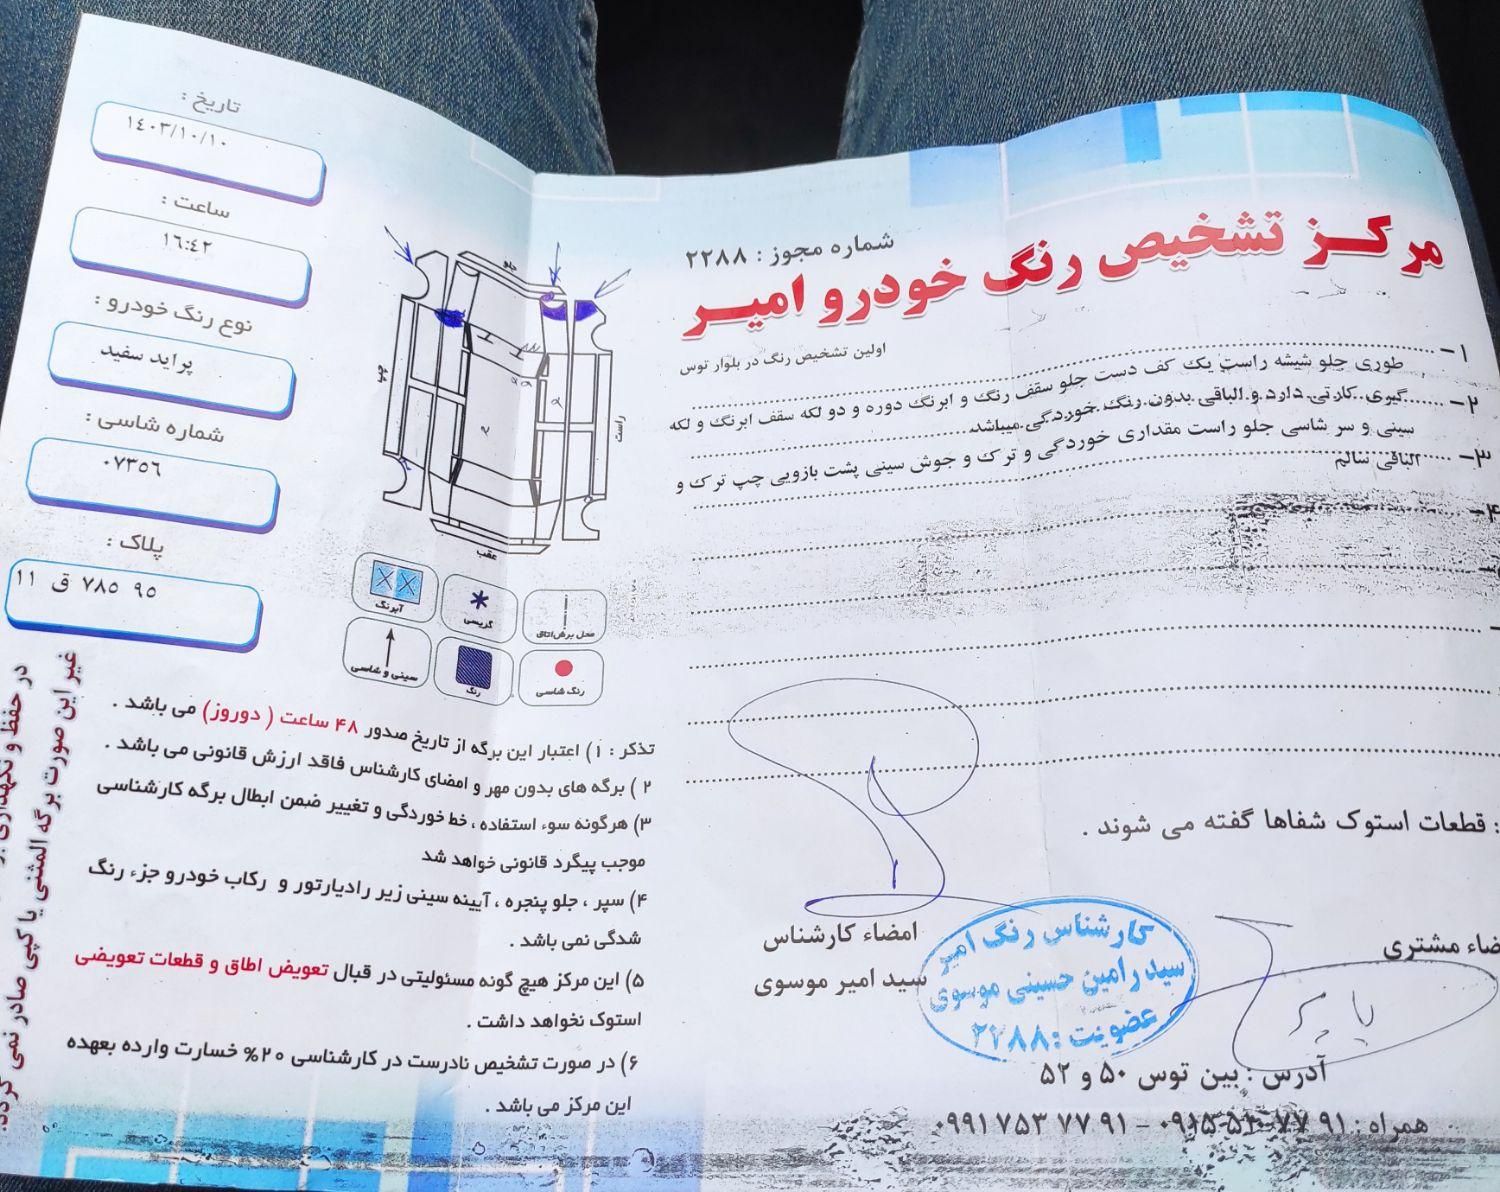 مرکز تشخیص رنگ خودرو امیر
شماره مجوز : ۲۲۸۸
اولین تشخیص رنگ در بلوار توس
۱-
طوری جلو شیشه راست یک کف دست جلو سقف رنگ و ابرنگ دوره و دو لکه سقف ابرنگ و لکه
۲-
گیری کارتی دارد و الباقی بدون رنگ خوردگی میباشد
۳-
سینی و سر شاسی جلو راست مقداری خوردگی و ترک و جوش سینی پشت بازویی چپ ترک و
الباقی سالم
۴-
: قطعات استوک شفاها گفته می شوند .
امضاء کارشناس
سید امیر موسوی
ضاء مشتری
کارشناس رنگ امیر
سید رامین حسینی موسوی
عضویت : ۲۲۸۸
آدرس : بین توس ۵۰ و ۵۲
همراه : ۹۱ ۷۷ ۵۲۰ ۰۹۱۵ - ۹۱ ۷۷ ۷۵۳ ۰۹۹۱
تاریخ :
۱۴۰۳/۱۰/۱۰
ساعت :
۱۶:۴۲
نوع رنگ خودرو :
پراید سفید
شماره شاسی :
۰۷۳۵۶
پلاک :
۹۵ ۷۸۵ ق ۱۱
جلو
چپ
راست
عقب
محل برش اتاق
گریسی
آبرنگ
رنگ شاسی
رنگ
سینی و شاسی
تذکر : ۱) اعتبار این برگه از تاریخ صدور ۴۸ ساعت ( دوروز) می باشد .
۲ ) برگه های بدون مهر و امضای کارشناس فاقد ارزش قانونی می باشد .
۳) هرگونه سوء استفاده ، خط خوردگی و تغییر ضمن ابطال برگه کارشناسی
موجب پیگرد قانونی خواهد شد
۴) سپر ، جلو پنجره ، آیینه سینی زیر رادیارتور و رکاب خودرو جزء رنگ
شدگی نمی باشد .
۵) این مرکز هیچ گونه مسئولیتی در قبال تعویض اطاق و قطعات تعویضی
استوک نخواهد داشت .
۶) در صورت تشخیص نادرست در کارشناسی ۲۰% خسارت وارده بعهده
این مرکز می باشد .
در حفظ و نگهداری
غیر این صورت برگه المثنی یا کپی صادر نمی گردد.